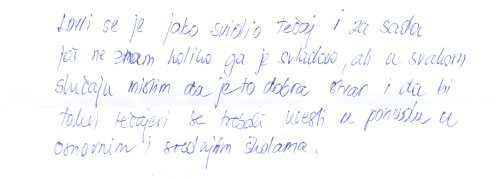 Lovri se je jako svidio tečaj i za sada
još ne znam koliko ga je svladao, ali u svakom
slučaju mislim da je to dobra stvar i da bi
takvi tečajevi se trebali uvesti u ponudu u
osnovnim i srednjim školama.